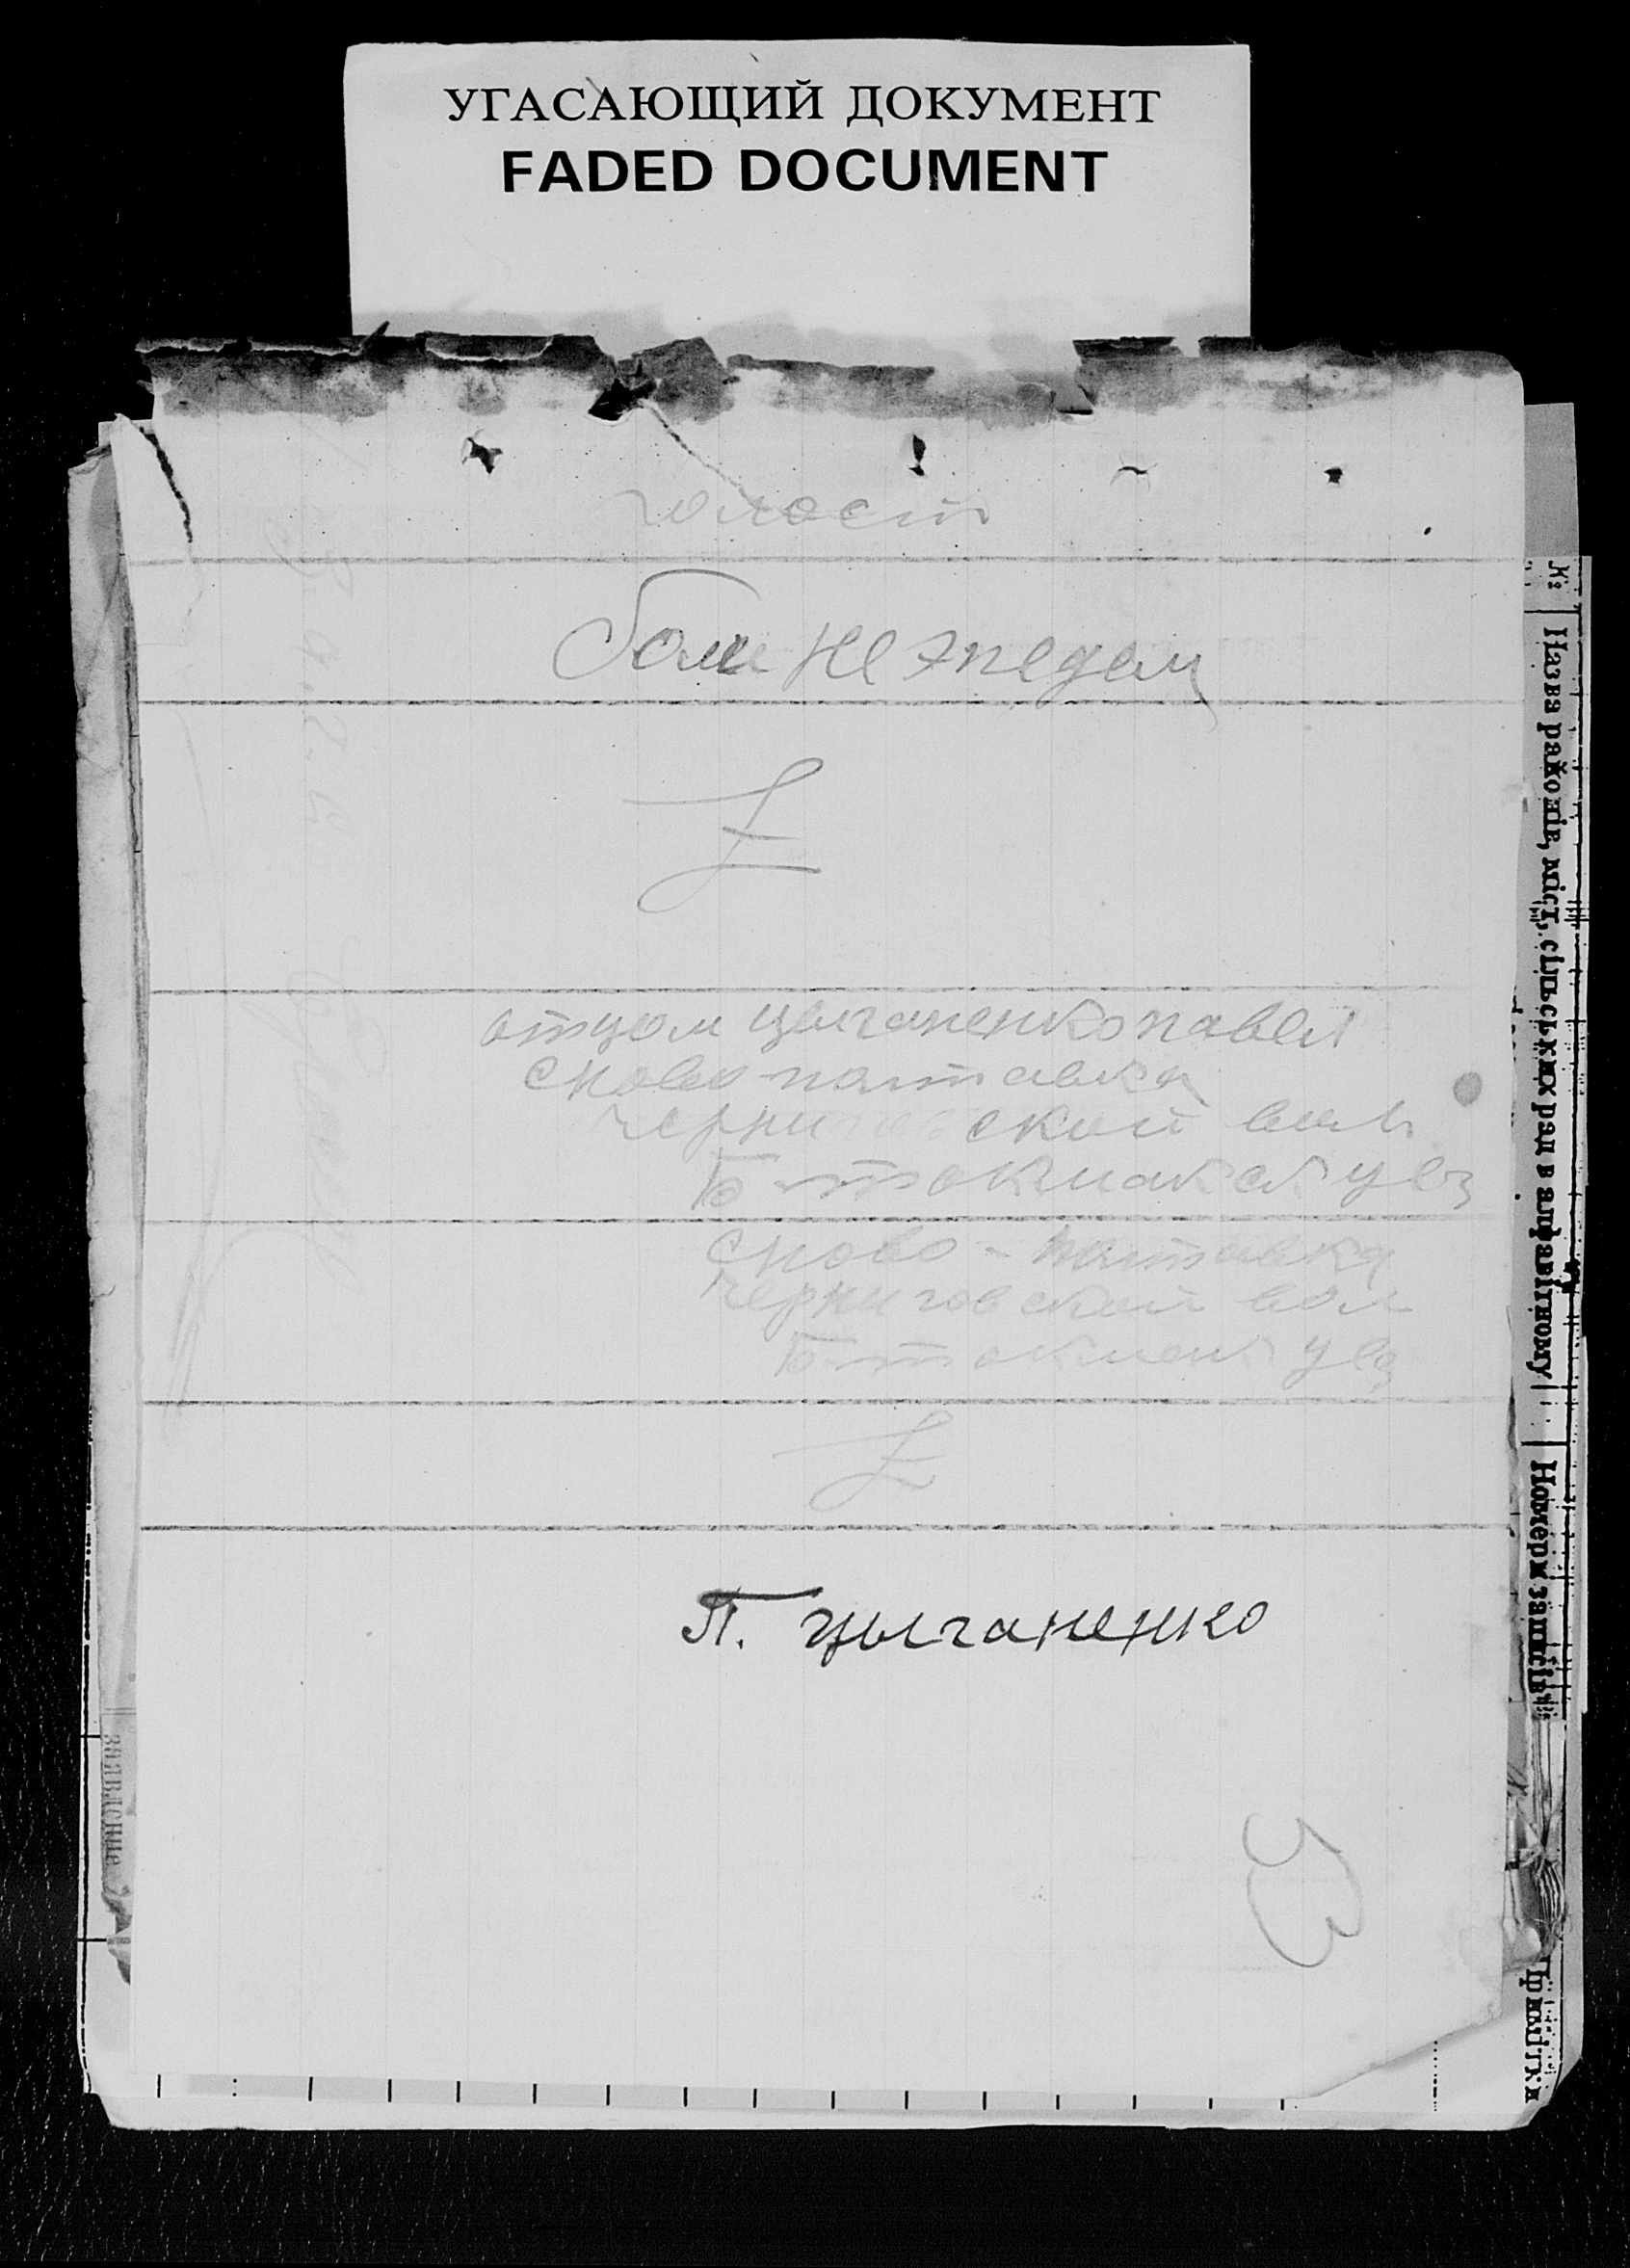 УГАСАЮЩИЙ ДОКУМЕНТ
FADED DOCUMENT
холост
отцом цыганенко павел
с ново полтавка
черниговской вол
Б токмакск уез
с ново-полтавка
черниговской вол
Б токмак уез
П. цыганенко
№
Назва районів, міст, сільських рад в алфавітному
Номери записів
Примітки
заявление